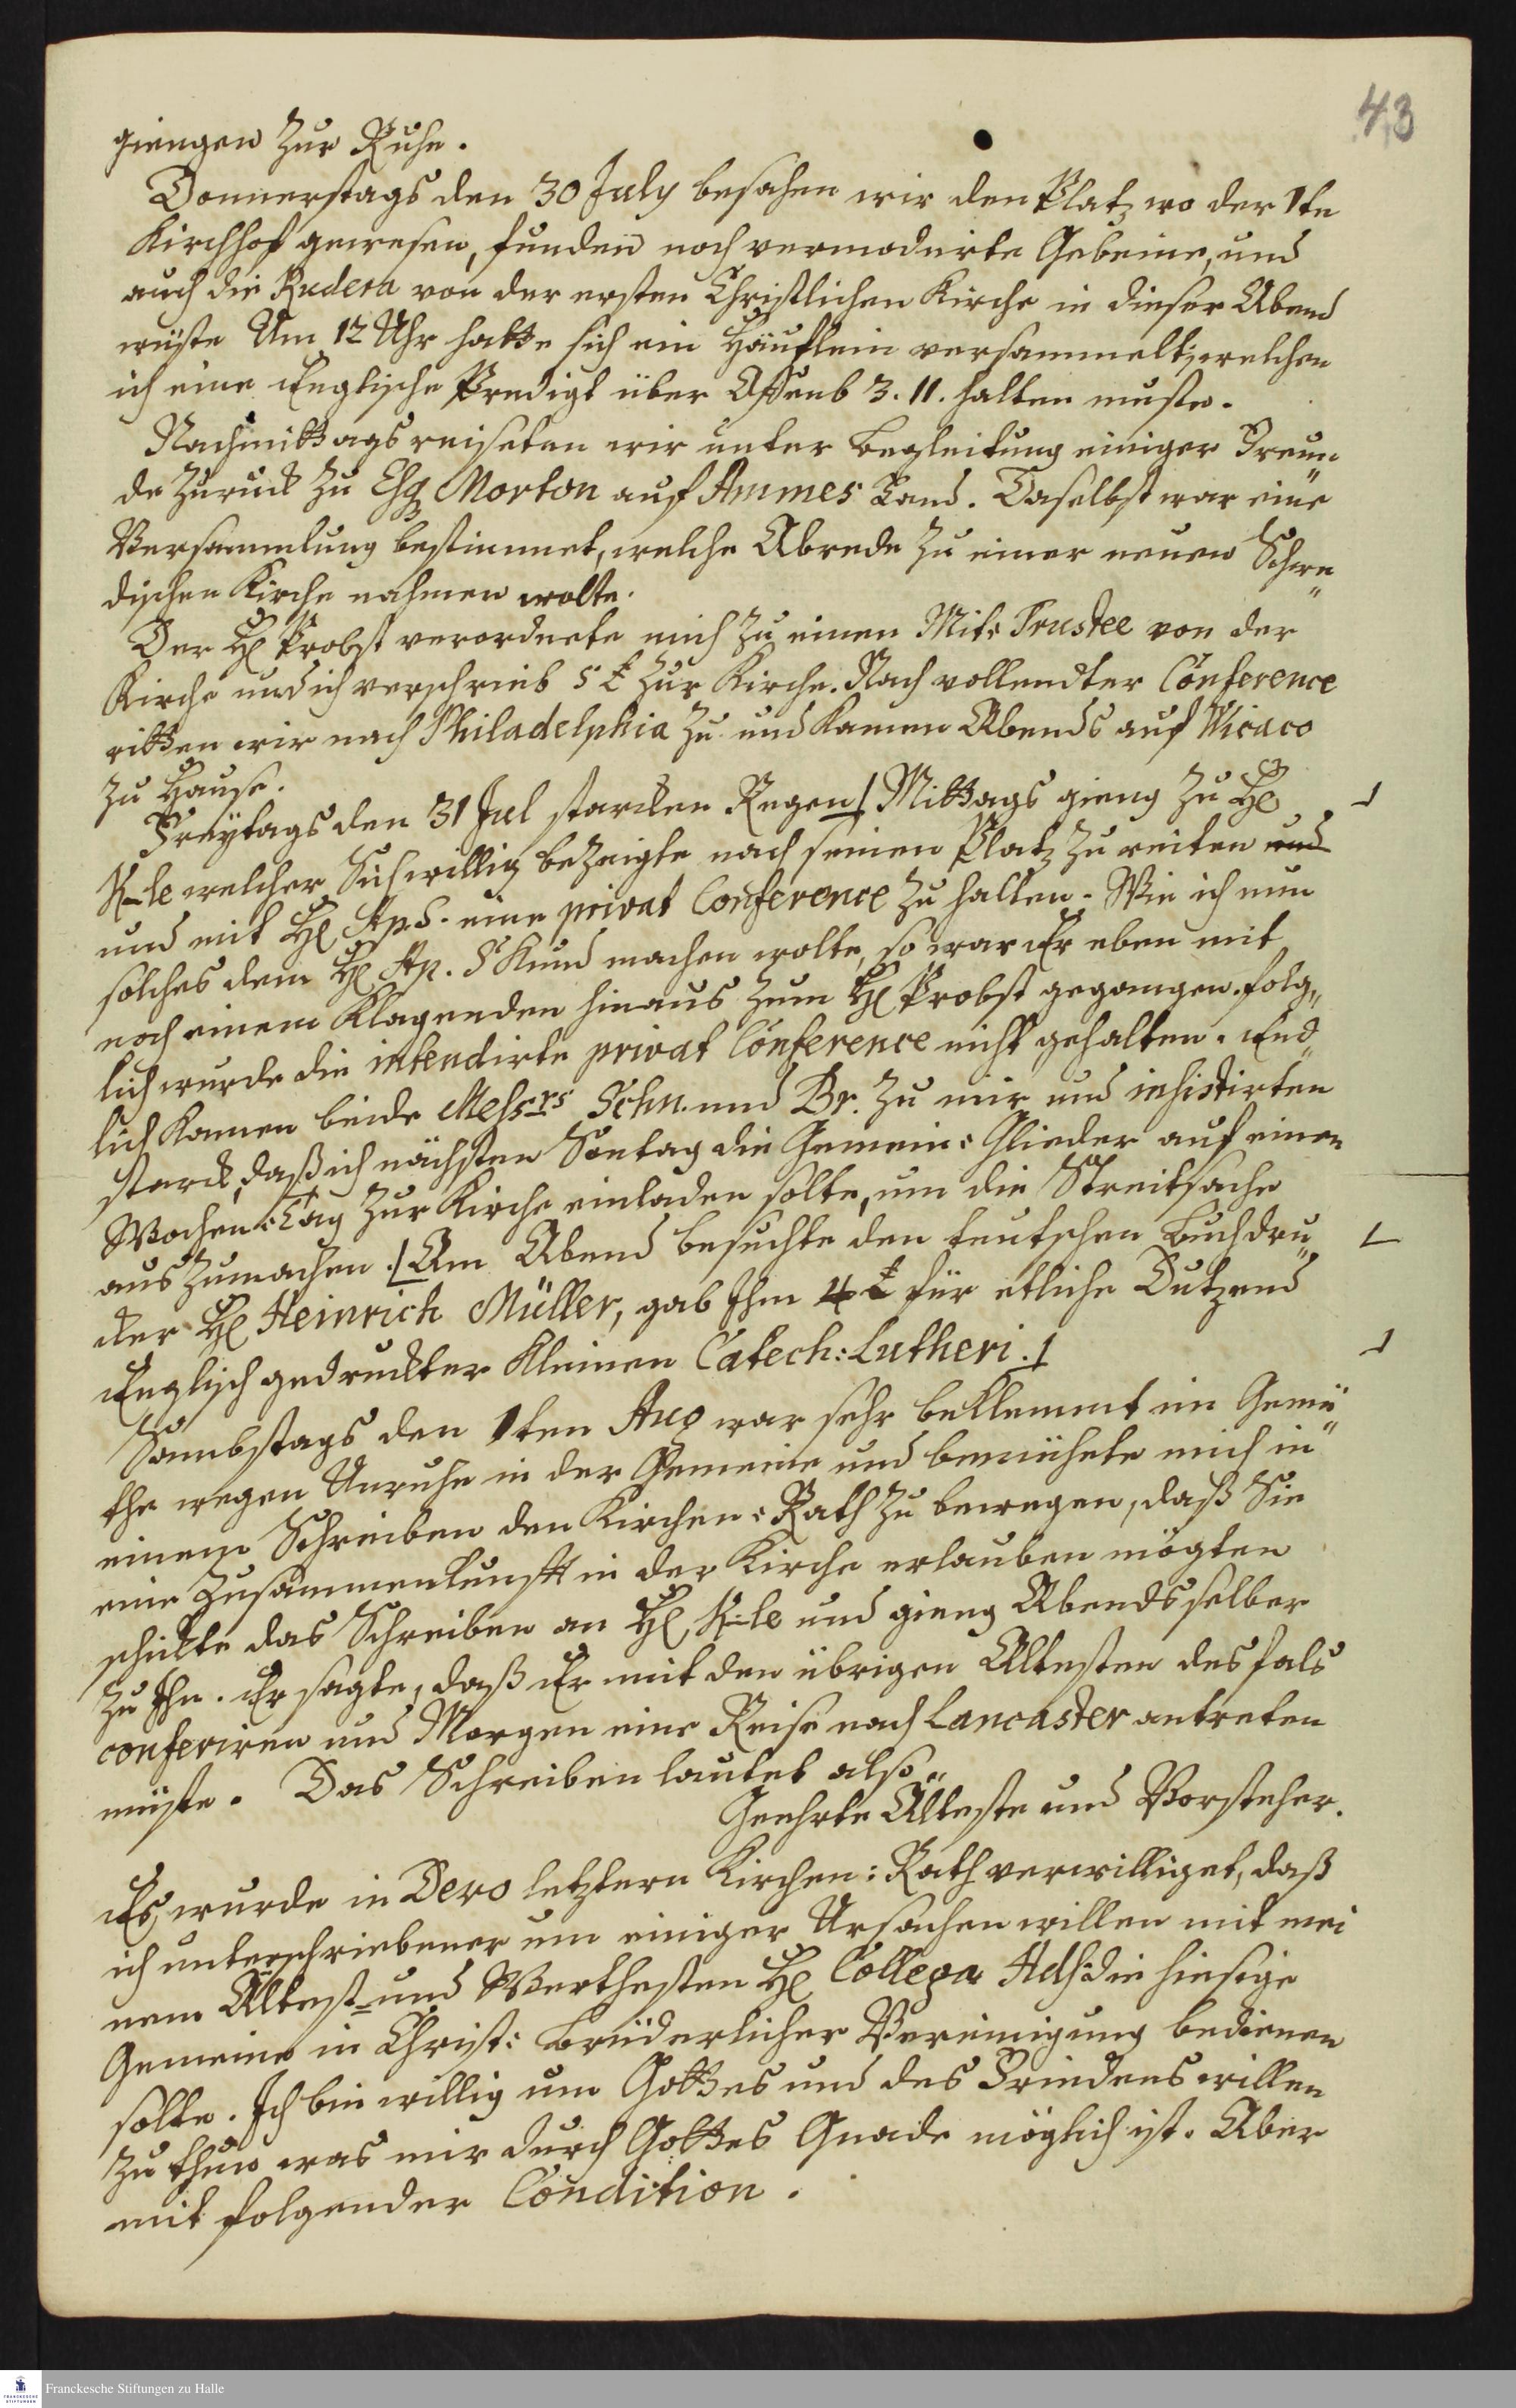 43
giengen zur Ruhe.
Donnerstags den 30 July besahen wir den Platz wo der 1te
Kirchhof gewesen, funden noch vermoderte Gebeine, und
auch die Rudera von der ersten Christlichen Kirche in dieser Abend
wüste Um 12 Uhr hatte sich ein Häuflein versammelt, welchen
ich eine Englische Predigt über Offenb 3. 11. halten muste.
Nachmittags reiseten wir unter Begleitung einiger Freun
de zuruck zu Esq Morton auf Ammes Land. Daselbst war eine
Versammlung bestimmet, welche Abrede zu einer neuen Schwe„
dischen Kirche nehmen wolte.
Der H Probst verordnete mich zu einen Mit: Trustee von der
Kirche und ich verschrieb 5 £ zur Kirche. Nach vollendter Conference
ritten wir nach Philadelphia zu und kamen Abends auf Wicaco
zu Hause.
Freytags den 31 Jul starcker Regen/ Mittags gieng zu H
K–le welcher Sich willig bezeigte nach seinen Platz zu reiten und
und mit H Ap S. eine privat Conference zu halten. Wie ich nun
solches dem H Ap. S kund machen wolte, so war Er eben mit
noch einem Klagenden hinaus zum H Probst gegangen. folg„
lich wurde die intendirte privat Conference nicht gehalten. End„
lich kamen beide Messrs Schn. und Br. zu mir und insistirten
starck, daß ich nächsten Sontag die Gemein: Glieder auf einen
Wochen: Tag zur Kirche einladen solte, um die Streitsache
auszumachen./ Am Abend besuchte den teutschen Buchdru„
cker H Heinrich Müller, gab Ihm 4 £ für etliche Dutzend
Englisch gedruckter kleinen Catech: Lutheri./
Sambstags den 1ten Aug war sehr beklemmt im Gemü„
the wegen Unruhe in der Gemeine und bemühete mich in
einem Schreiben den Kirchen: Rath zu bewegen, daß Sie
eine Zusammenkunfft in der Kirche erlauben mögten
schickte das Schreiben an H K–le und gieng Abends selber
zu Ihn. Er sagte, daß Er mit den übrigen Altesten desfals
conferiren und Morgen eine Reise nach Lancaster antreten
müste. Das Schreiben lautet also„
Geehrte Älteste und Vorsteher.
Es wurde in Dero letztern Kirchen: Rath verwilliget, daß
ich unterschriebener um einiger Ursachen willen mit mei
nem Altest- und Werthesten H Collega Hdsh: die hiesige
Gemeine in Christ: brüderlicher Vereinigung bedienen
solte. Ich bin willig um Gottes und des Friedens willen
zu thun was mir durch Gottes Gnade möglich ist. Aber
mit folgender Condition.
FRANCKESCHE STIFTUNGEN
Franckesche Stiftungen zu Halle